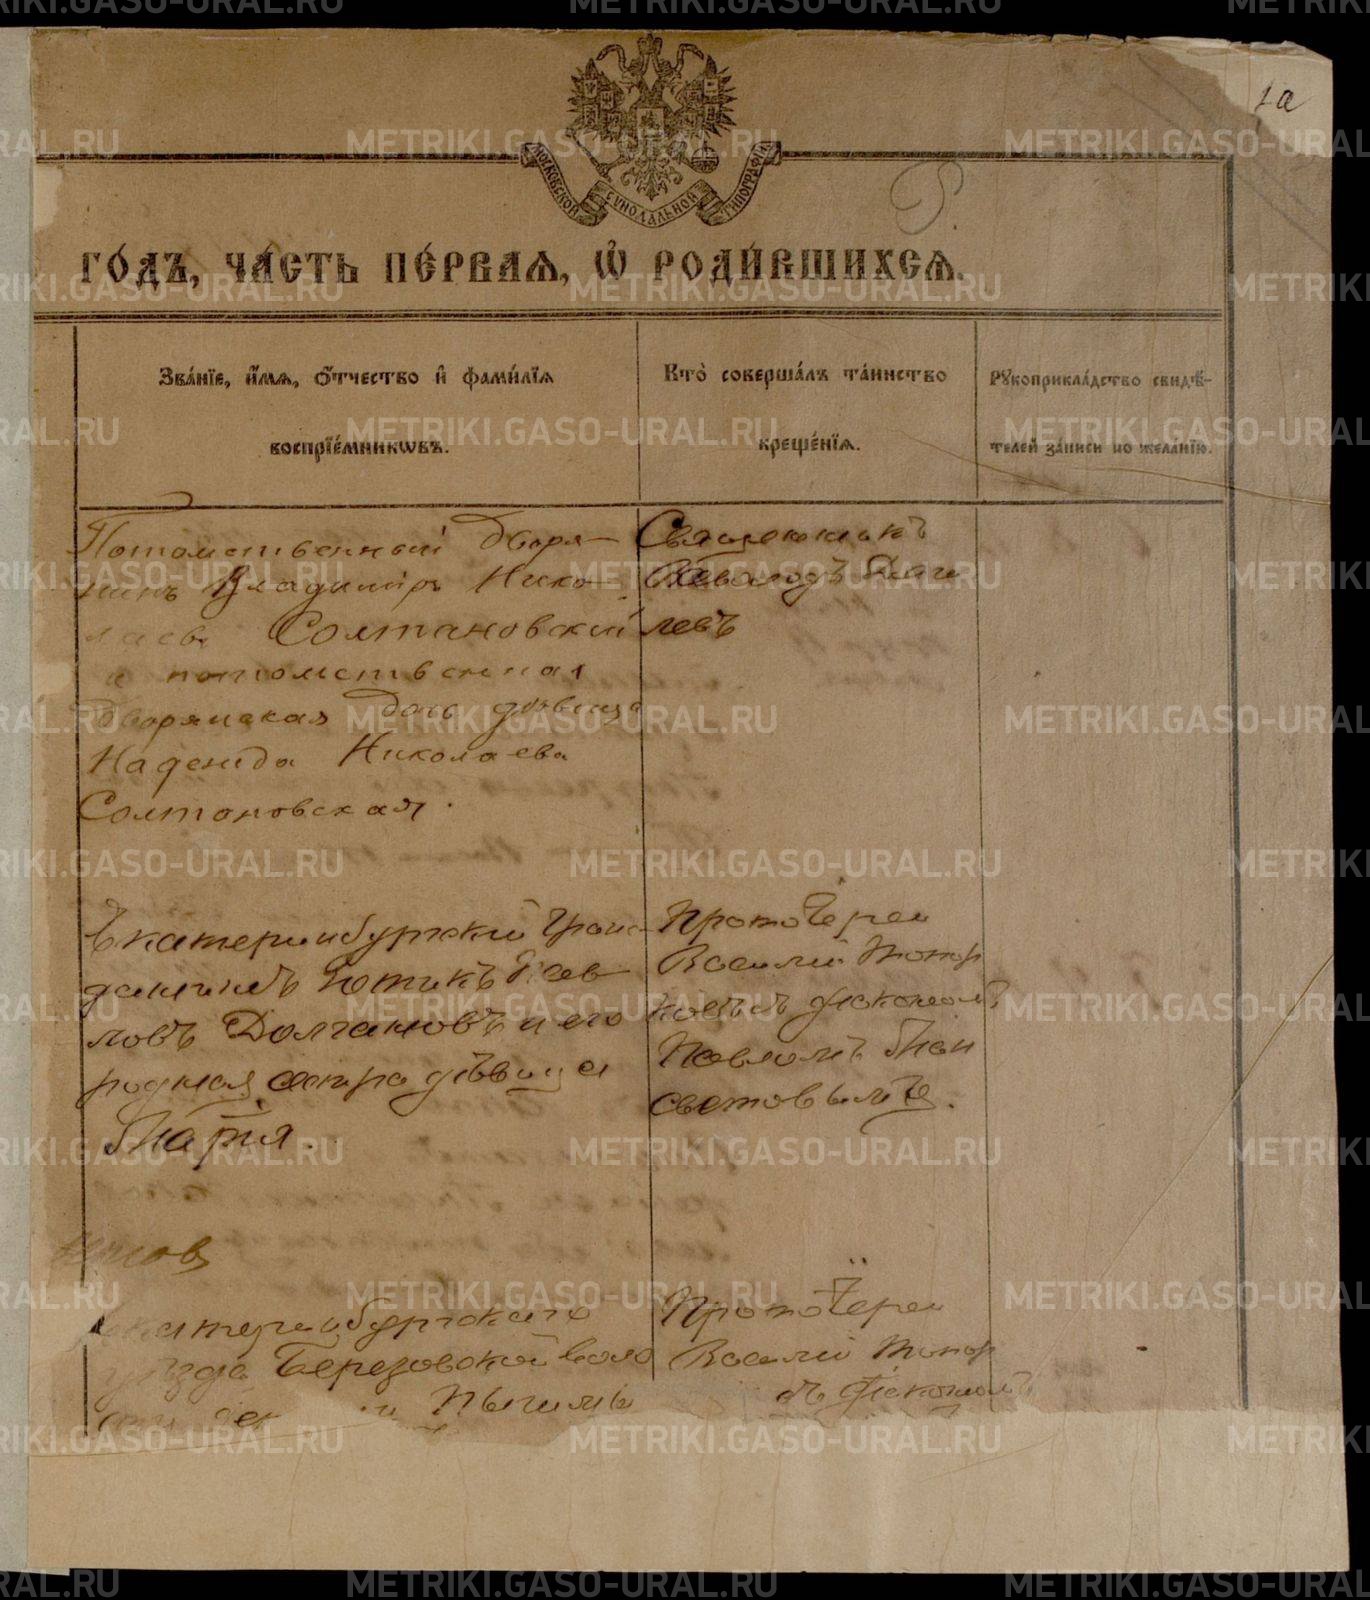 1а
МОСКОВСКОЙ СѴНОДАЛЬНОЙ ТИПОГРАФІИ
ГО́ДЪ, ЧА́СТЬ ПЕ́РВАѦ, Ѡ҆ РОДИ́ВШИХСѦ.
Зва́нїе, и҆́мѧ, ѻ҆́тчество и҆ фами́лїѧ
воспрїе́мникѡвъ.
Кто̀ соверша́лъ та́инство
креще́нїѧ.
Рꙋкоприкла́дство свидѣ́-
телей за́писи по жела́нїю.
Потомственный дворя-
нинъ Владиміръ Нико
лаевъ Солтановский
и потомственная
Дворянская дочь дѣвица
Надежда Николаева
Солтановская.
Священникъ
Всеволодъ
левъ
Екатеринбургский граж-
данинъ
ловъ Долгановъ и его
родная сестра дѣвица
Марія.
Протоіерей
Василий Топор
ковъ съ діакономъ
Павломъ
световымъ.
Екатеринбургскаго
уѣзда Березовской воло
Пышмы
Протоіерей
Василий Топор
съ діакономъ
METRIKI.GASO-URAL.RU